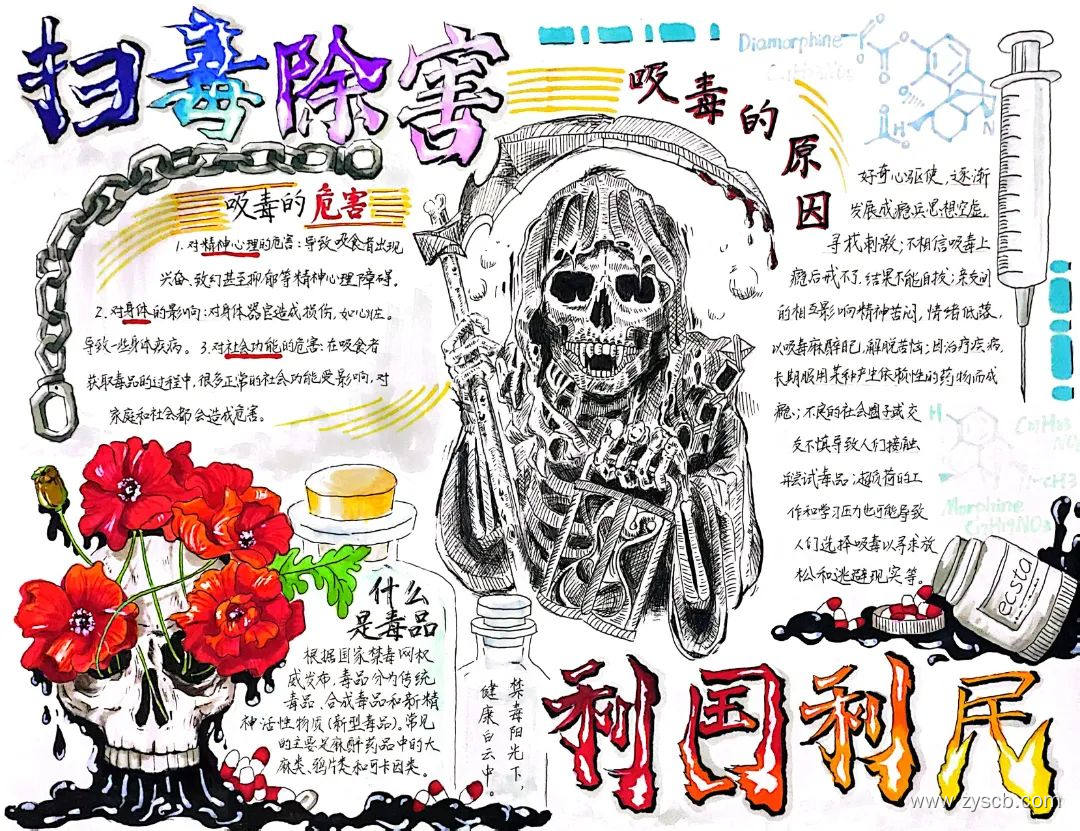 扫毒除害
吸毒的危害
1.对精神心理的危害:导致吸食者出现
兴奋、致幻甚至抑郁等精神心理障碍。
2.对身体的影响:对身体器官造成损伤,如心脏。
导致一些身体疾病。3.对社会功能的危害:在吸食者
获取毒品的过程中,很多正常的社会功能受影响,对
家庭和社会都会造成危害。
吸毒的原因
Diamorphine
好奇心驱使,逐渐
发展成瘾;思想空虚,
寻找刺激;不相信吸毒上
瘾后戒不了,结果不能自拔;
的相互影响精神苦闷,情绪低落,
以吸毒麻醉自己,解脱苦恼;因治疗疾病,
长期服用某种产生依赖性的药物而成
瘾;不良的社会圈子或交
友不慎导致人们接触
并尝试毒品;超负荷的工
作和学习压力也可能导致
人们选择吸毒以寻求放
松和逃避现实等。
H
CH3
Morphine
C17H19NO3
ecsta
什么
是毒品
根据国家禁毒网权
威发布,毒品分为传统
毒品、合成毒品和新精
神活性物质(新型毒品)。常见
的主要是麻醉药品中的大
麻类、鸦片类和可卡因类。
禁毒阳光下,
健康白云中。
利国利民
www.zyscb.com